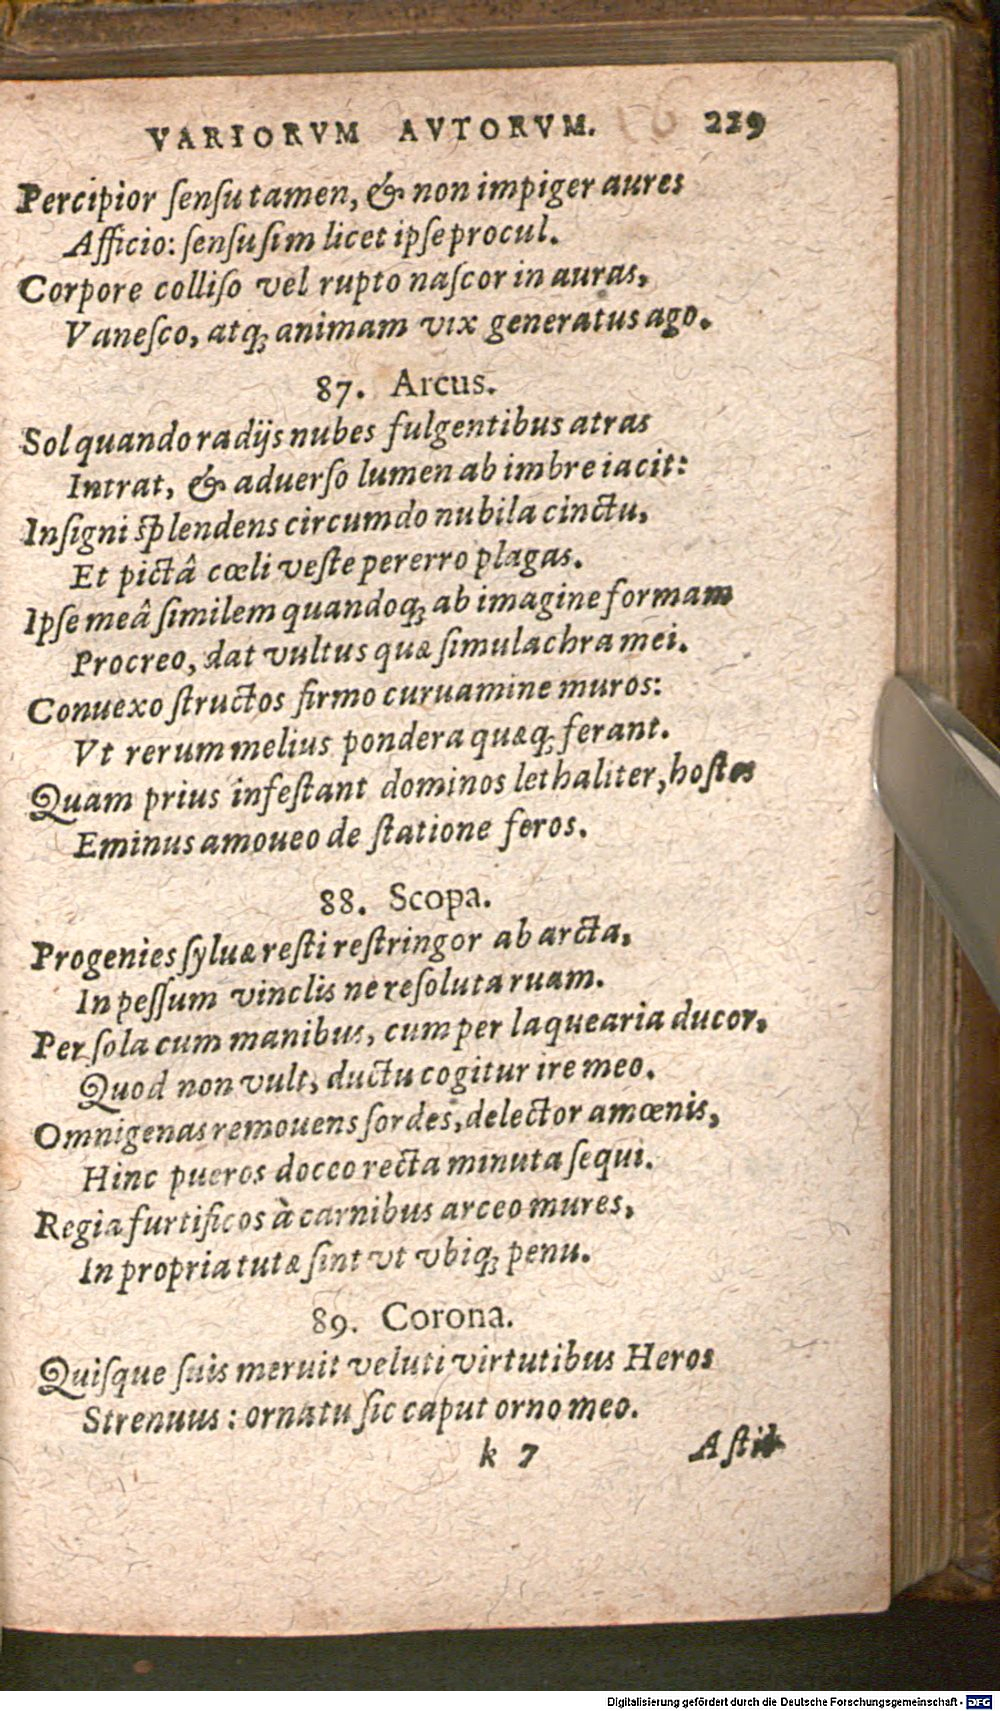 VARIORVM AVTORVM. 229
Percipior ſenſu tamen, & non impiger aures
Afficio: ſenſu ſim licet ipſe procul.
Corpore colliſo vel rupto naſcor in auras,
Vaneſco, atq; animam vix generatus ago.
87. Arcus.
Sol quando radijs nubes fulgentibus atras
Intrat, & aduerſo lumen ab imbre iacit:
Inſigni ſplendens circumdo nubila cinctu,
Et pictâ cœli veſte pererro plagas.
Ipſe meâ ſimilem quandoq; ab imagine formam
Procreo, dat vultus quæ ſimulachra mei.
Conuexo ſtructos firmo curuamine muros:
Vt rerum melius pondera quæq; ferant.
Quam prius infeſtant dominos lethaliter, hoſtes
Eminus amoueo de ſtatione feros.
88. Scopa.
Progenies ſyluæ reſti reſtringor ab arcta,
In peſſum vinclis ne reſoluta ruam.
Per ſola cum manibus, cum per laquearia ducor,
Quod non vult, ductu cogitur ire meo.
Omnigenas remouens ſordes, delector amœnis,
Hinc pueros doceo recta minuta ſequi.
Regia furtificos à carnibus arceo mures,
In propria tutæ ſint vt vbiq; penu.
89. Corona.
Quiſque ſuis meruit veluti virtutibus Heros
Strenuus: ornatu ſic caput orno meo.
k 7 Aſtit
Digitalisierung gefördert durch die Deutsche Forschungsgemeinschaft - DFG